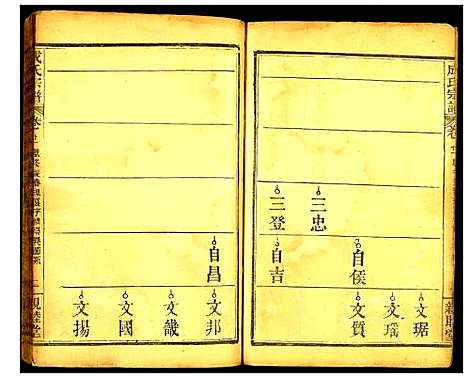 成氏宗譜
卷
三忠
三登
自侯
自吉
文琚
文瑤
文質
自昌
文邦
文畿
文國
文揚
成氏宗譜
卷
親睦堂